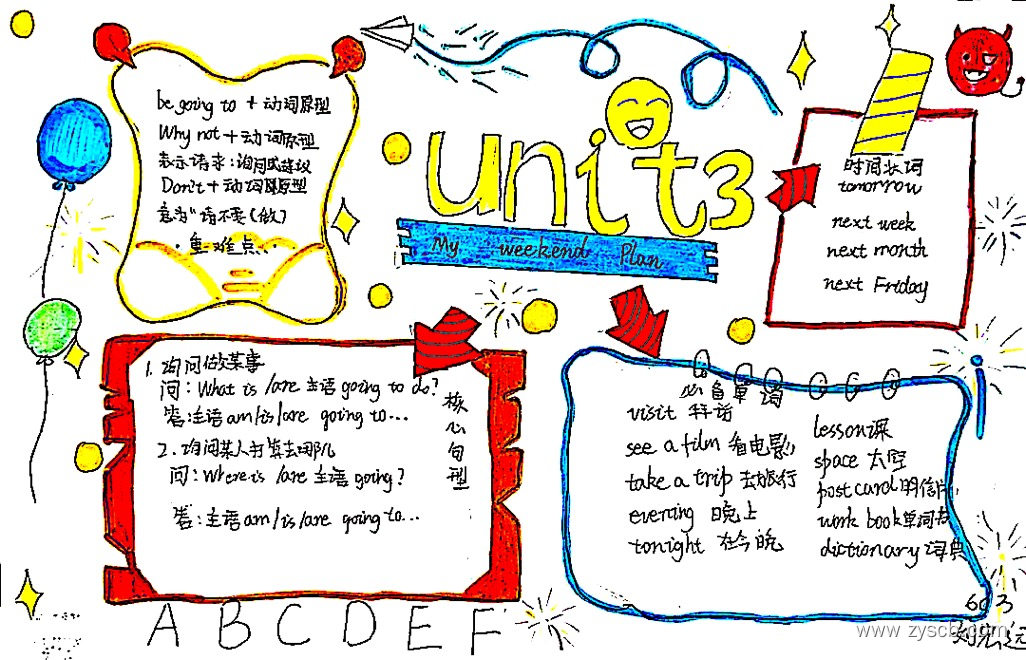 be going to + 动词原型
Why not + 动词原型
表示请求:询问或建议
Don't + 动词原型
意为"请不要(做)
·重难点·
unit3
My weekend Plan
时间状词
tomorrow
next week
next month
next Friday
1. 询问做某事
问: What is /are 主语 going to do?
答:主语 am/is/are going to...
2. 询问某人打算去哪儿
问: Where is /are 主语 going?
答:主语 am/is/are going to...
核心句型
必备单词
visit 拜访
see a film 看电影
take a trip 去旅行
evering 晚上
tonight 在今晚
lesson 课
space 太空
post card 明信片
work book 单词书
dictionary 词典
A B C D E F
603
www.zyscb.com